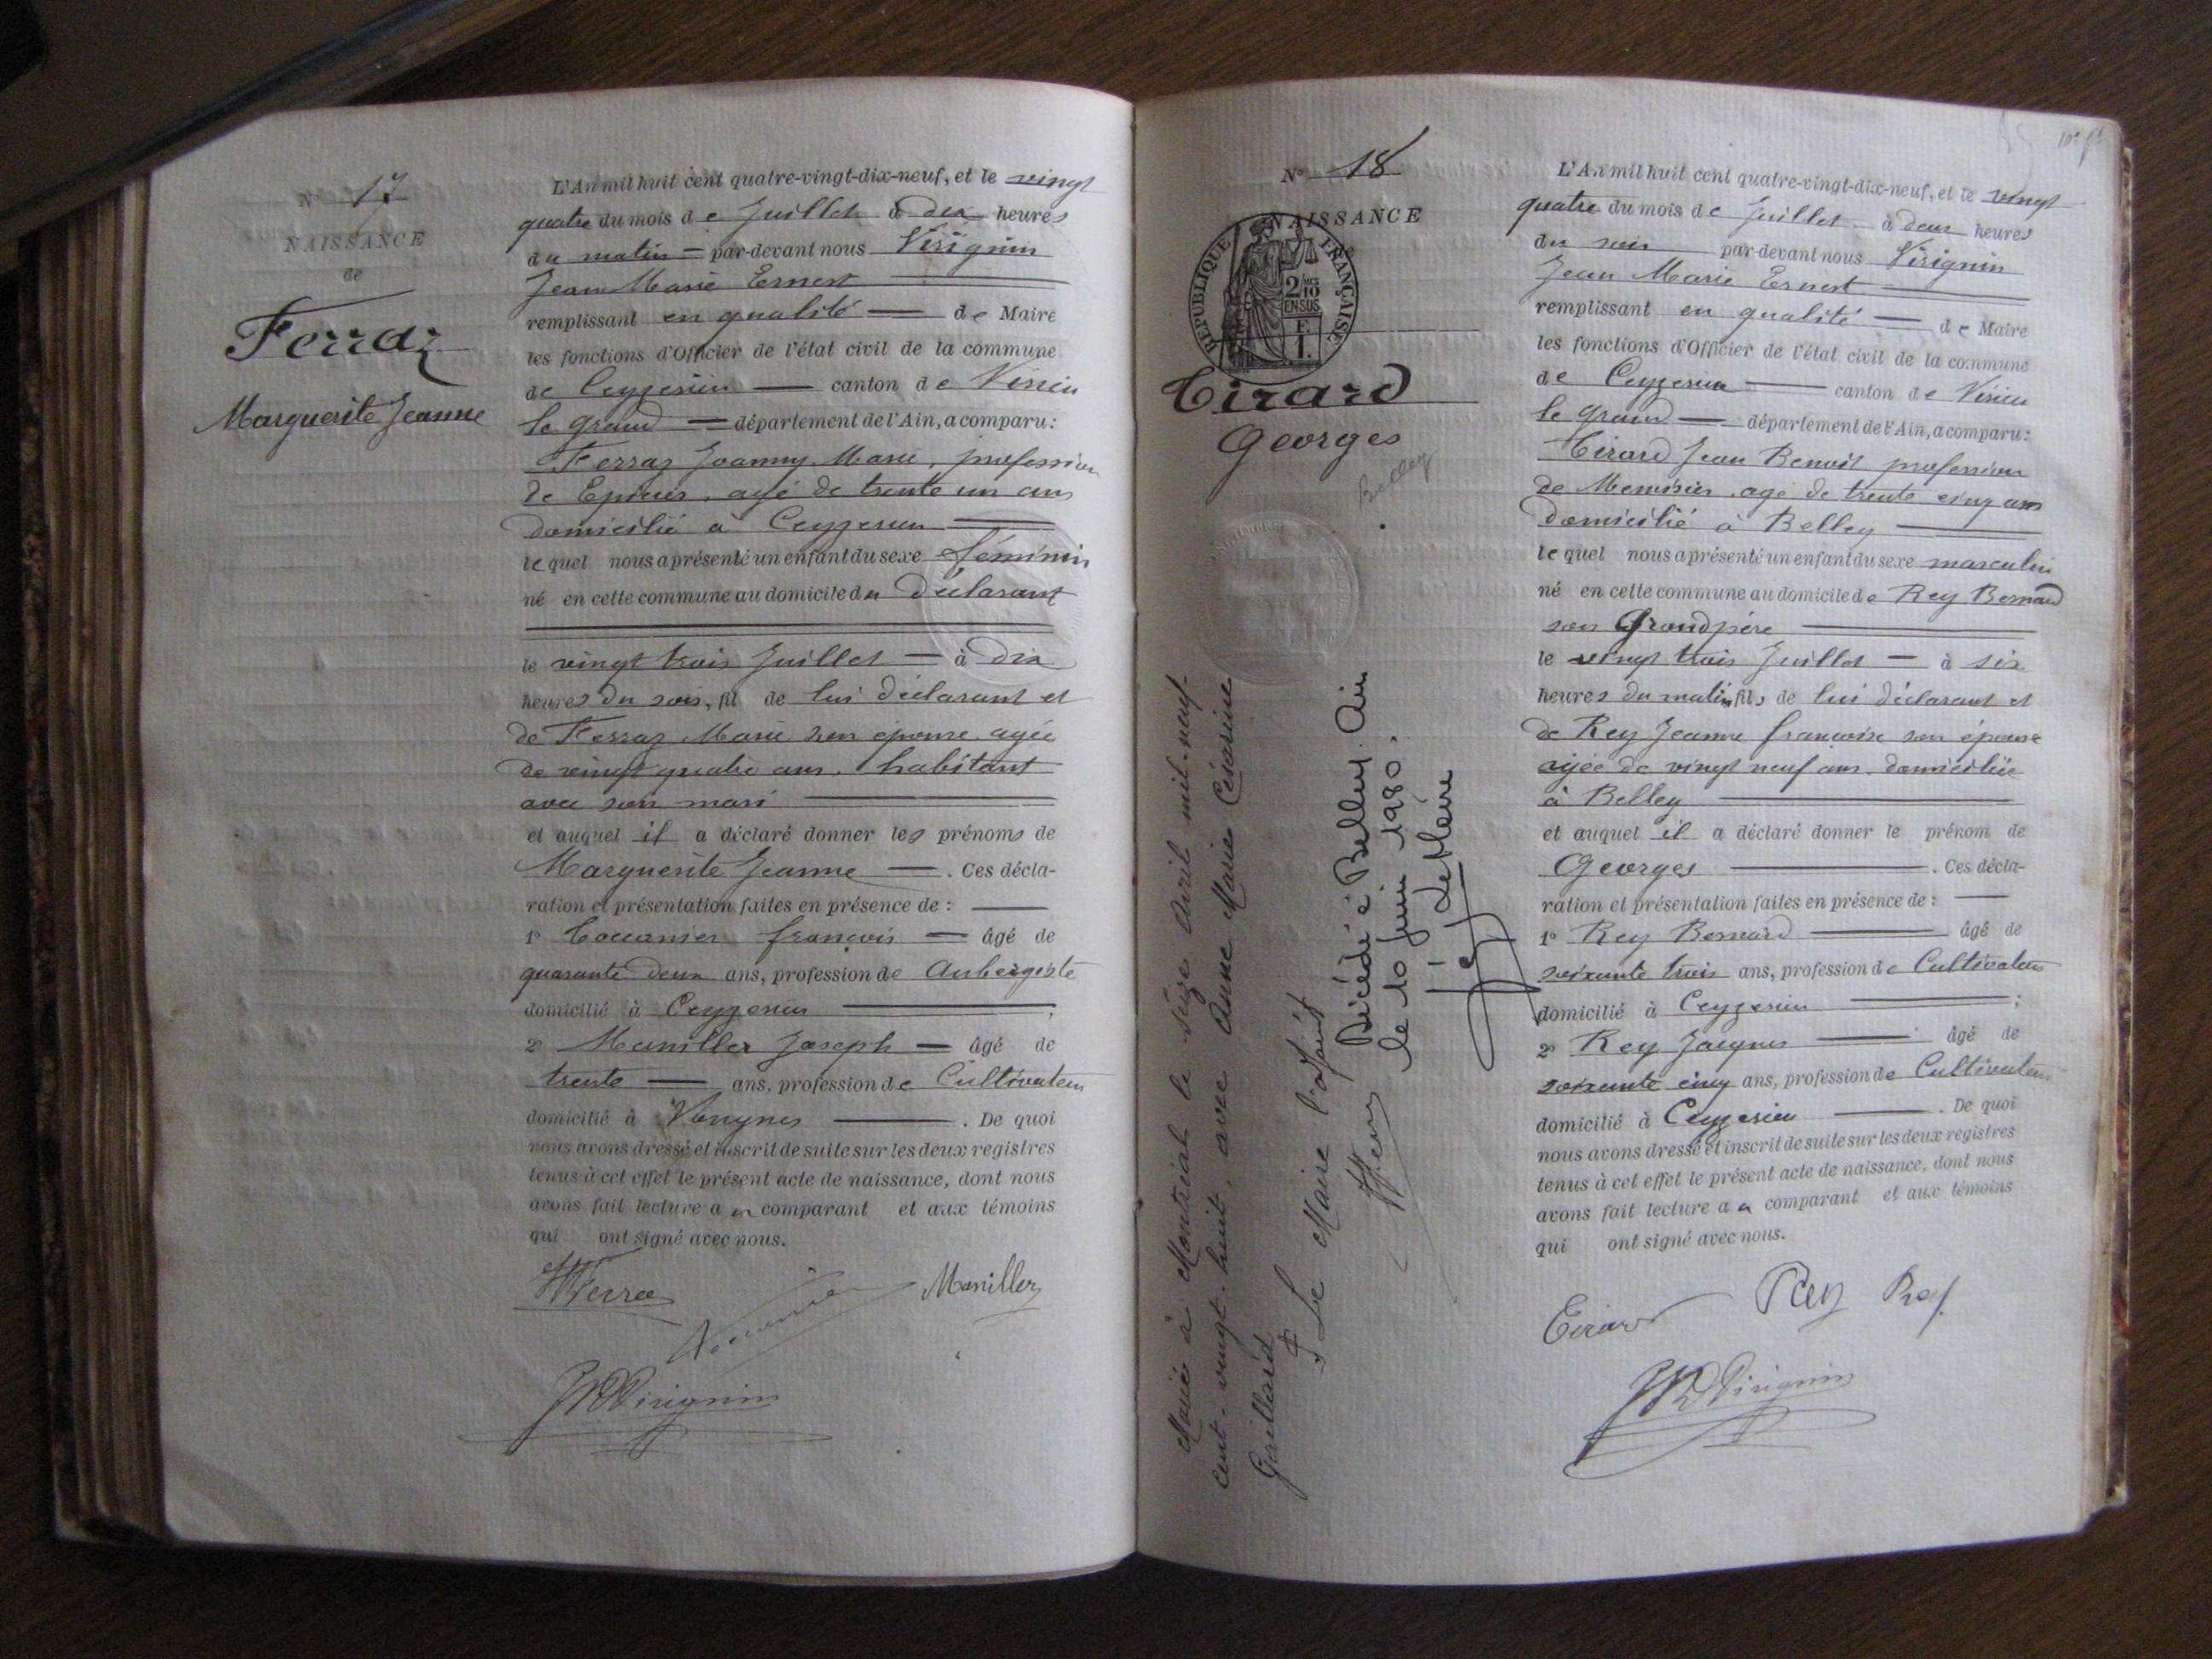 N° 17
NAISSANCE
de
Ferraz
Marguerite Jeanne
L'An mil huit cent quatre-vingt-dix-neuf, et le vingt
quatre du mois de Juillet à dix heures
du matin — par-devant nous Virignin
Jean Marie Ernest
remplissant en qualité — de Maire
les fonctions d'Officier de l'état civil de la commune
de Ceyzerieu — canton de Virieu
le Grand — département de l'Ain, a comparu :
Ferraz Joanny Marie, profession
de Epicier, agé de trente un ans
domicilié à Ceyzerieu
lequel nous a présenté un enfant du sexe féminin
né en cette commune au domicile du déclarant
le vingt trois Juillet — à dix
heures du soir, fil de lui déclarant et
de Ferraz Marie son épouse agée
de vingt quatre ans, habitant
avec son mari
et auquel il a déclaré donner les prénoms de
Marguerite Jeanne — . Ces décla-
ration et présentation faites en présence de :
1° françois — âgé de
quarante deux ans, profession de Aubergiste
domicilié à Ceyzerieu ;
2° Joseph — âgé de
trente — ans, profession de Cultivateur
domicilié à Vongnes — . De quoi
nous avons dressé et inscrit de suite sur les deux registres
tenus à cet effet le présent acte de naissance, dont nous
avons fait lecture au comparant et aux témoins
qui ont signé avec nous.
Virignin
N° 18
NAISSANCE
de
RÉPUBLIQUE FRANÇAISE
2/10 EN SUS
Tirard
Georges
Belley
Marié à Montréal le seize Avril mil-neuf-
cent-vingt-huit, avec Anne Marie Césarine
Gaillard
Le Maire l'adjoint
Décédé à Belley Ain
le 10 juin 1980.
L'An mil huit cent quatre-vingt-dix-neuf, et le vingt
quatre du mois de Juillet à deux heures
du soir par-devant nous Virignin
Jean Marie Ernest
remplissant en qualité — de Maire
les fonctions d'Officier de l'état civil de la commune
de Ceyzerieu — canton de Virieu
le Grand — département de l'Ain, a comparu :
Tirard Jean Benoit profession
de Menuisier agé de trente cinq ans
domicilié à Belley
lequel nous a présenté un enfant du sexe masculin
né en cette commune au domicile de Rey Bernard
son Grand père
le vingt trois Juillet — à six
heures du matin fils de lui déclarant et
de Rey Jeanne françoise son épouse
agée de vingt neuf ans domiciliée
à Belley
et auquel il a déclaré donner le prénom de
Georges — . Ces décla-
ration et présentation faites en présence de :
1° Rey Bernard — âgé de
soixante trois ans, profession de Cultivateur
domicilié à Ceyzerieu ;
2° Rey Jacques — âgé de
soixante cinq ans, profession de Cultivateur
domicilié à Ceyzerieu — . De quoi
nous avons dressé et inscrit de suite sur les deux registres
tenus à cet effet le présent acte de naissance, dont nous
avons fait lecture au comparant et aux témoins
qui ont signé avec nous.
Tirard Rey Rey
Virignin